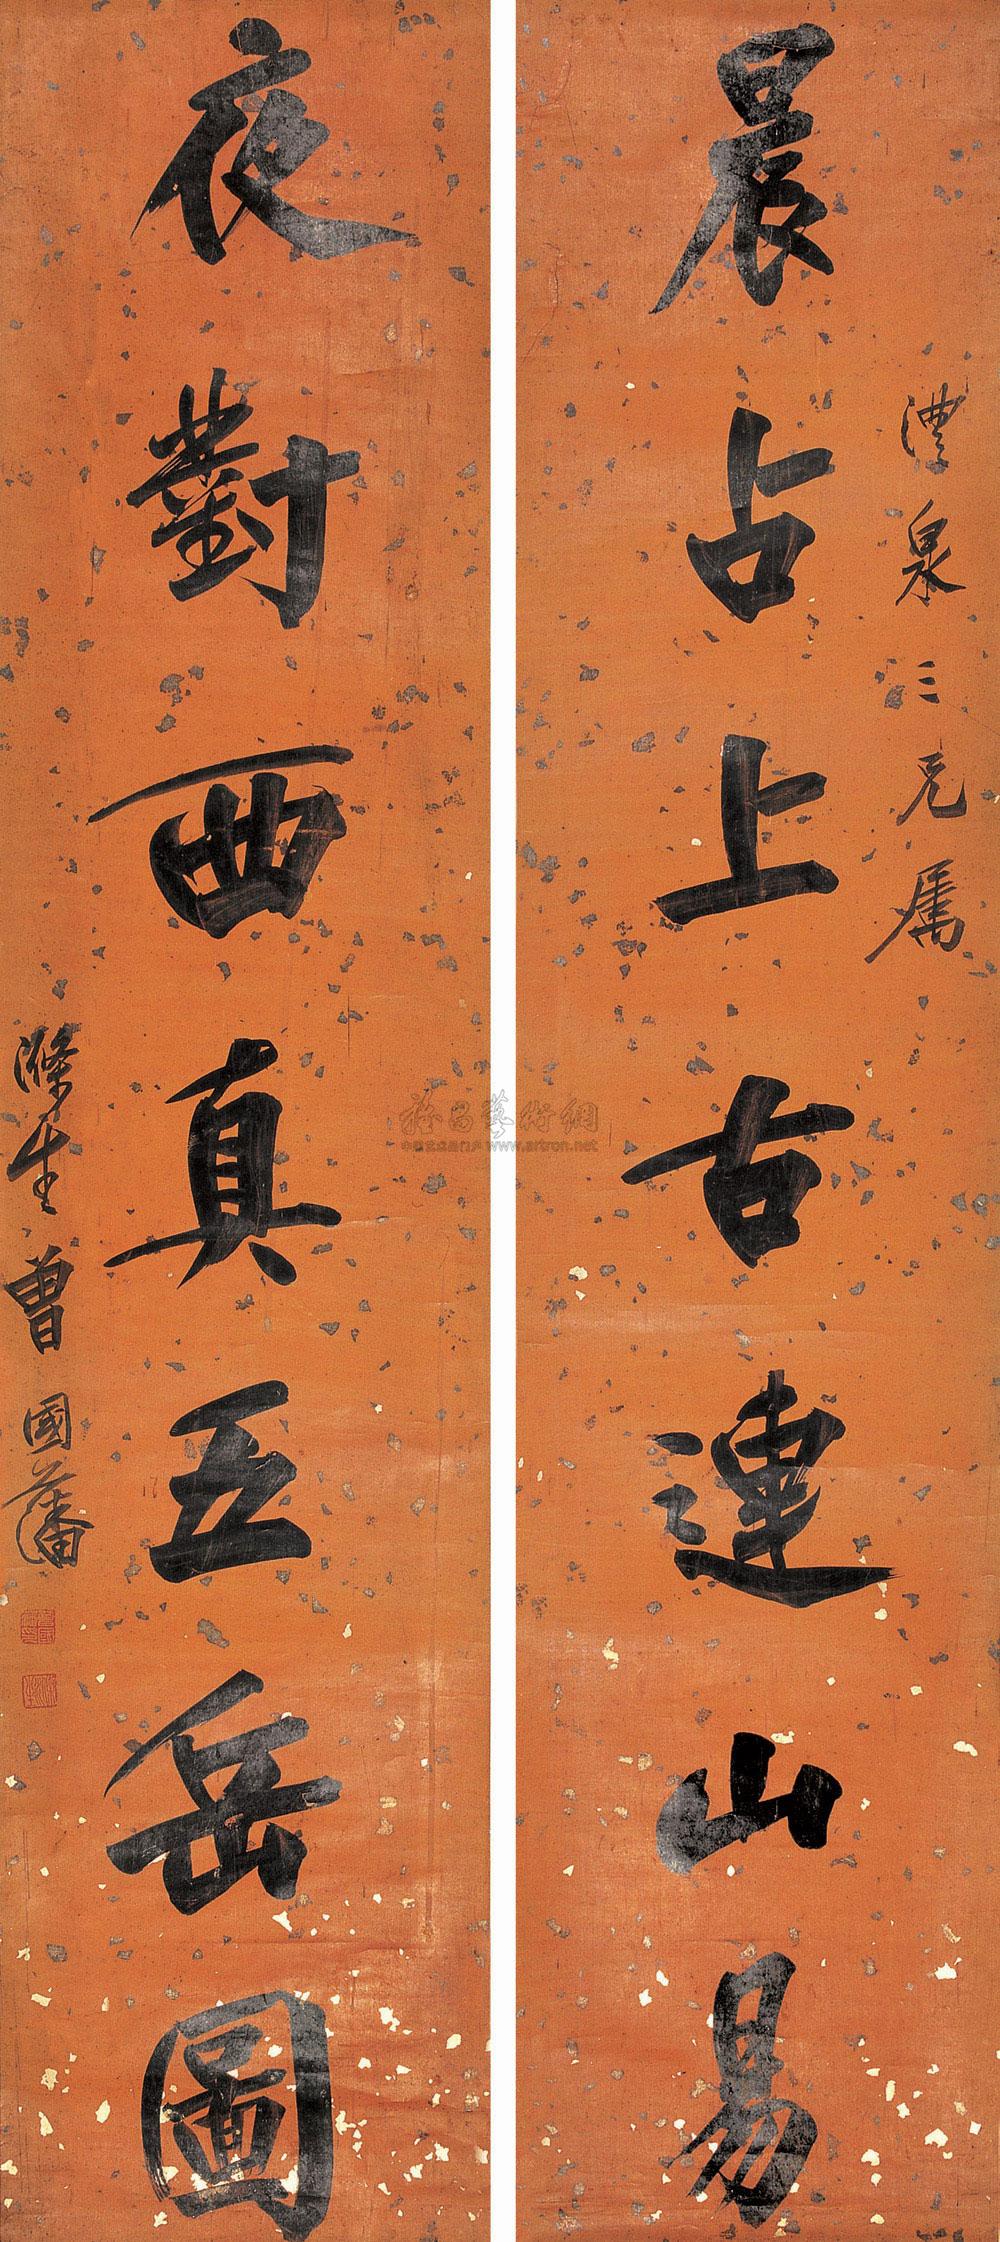 晨占上古連山易
澧泉三兄屬
夜對西真五岳圖
滌生曾國藩
www.artron.net